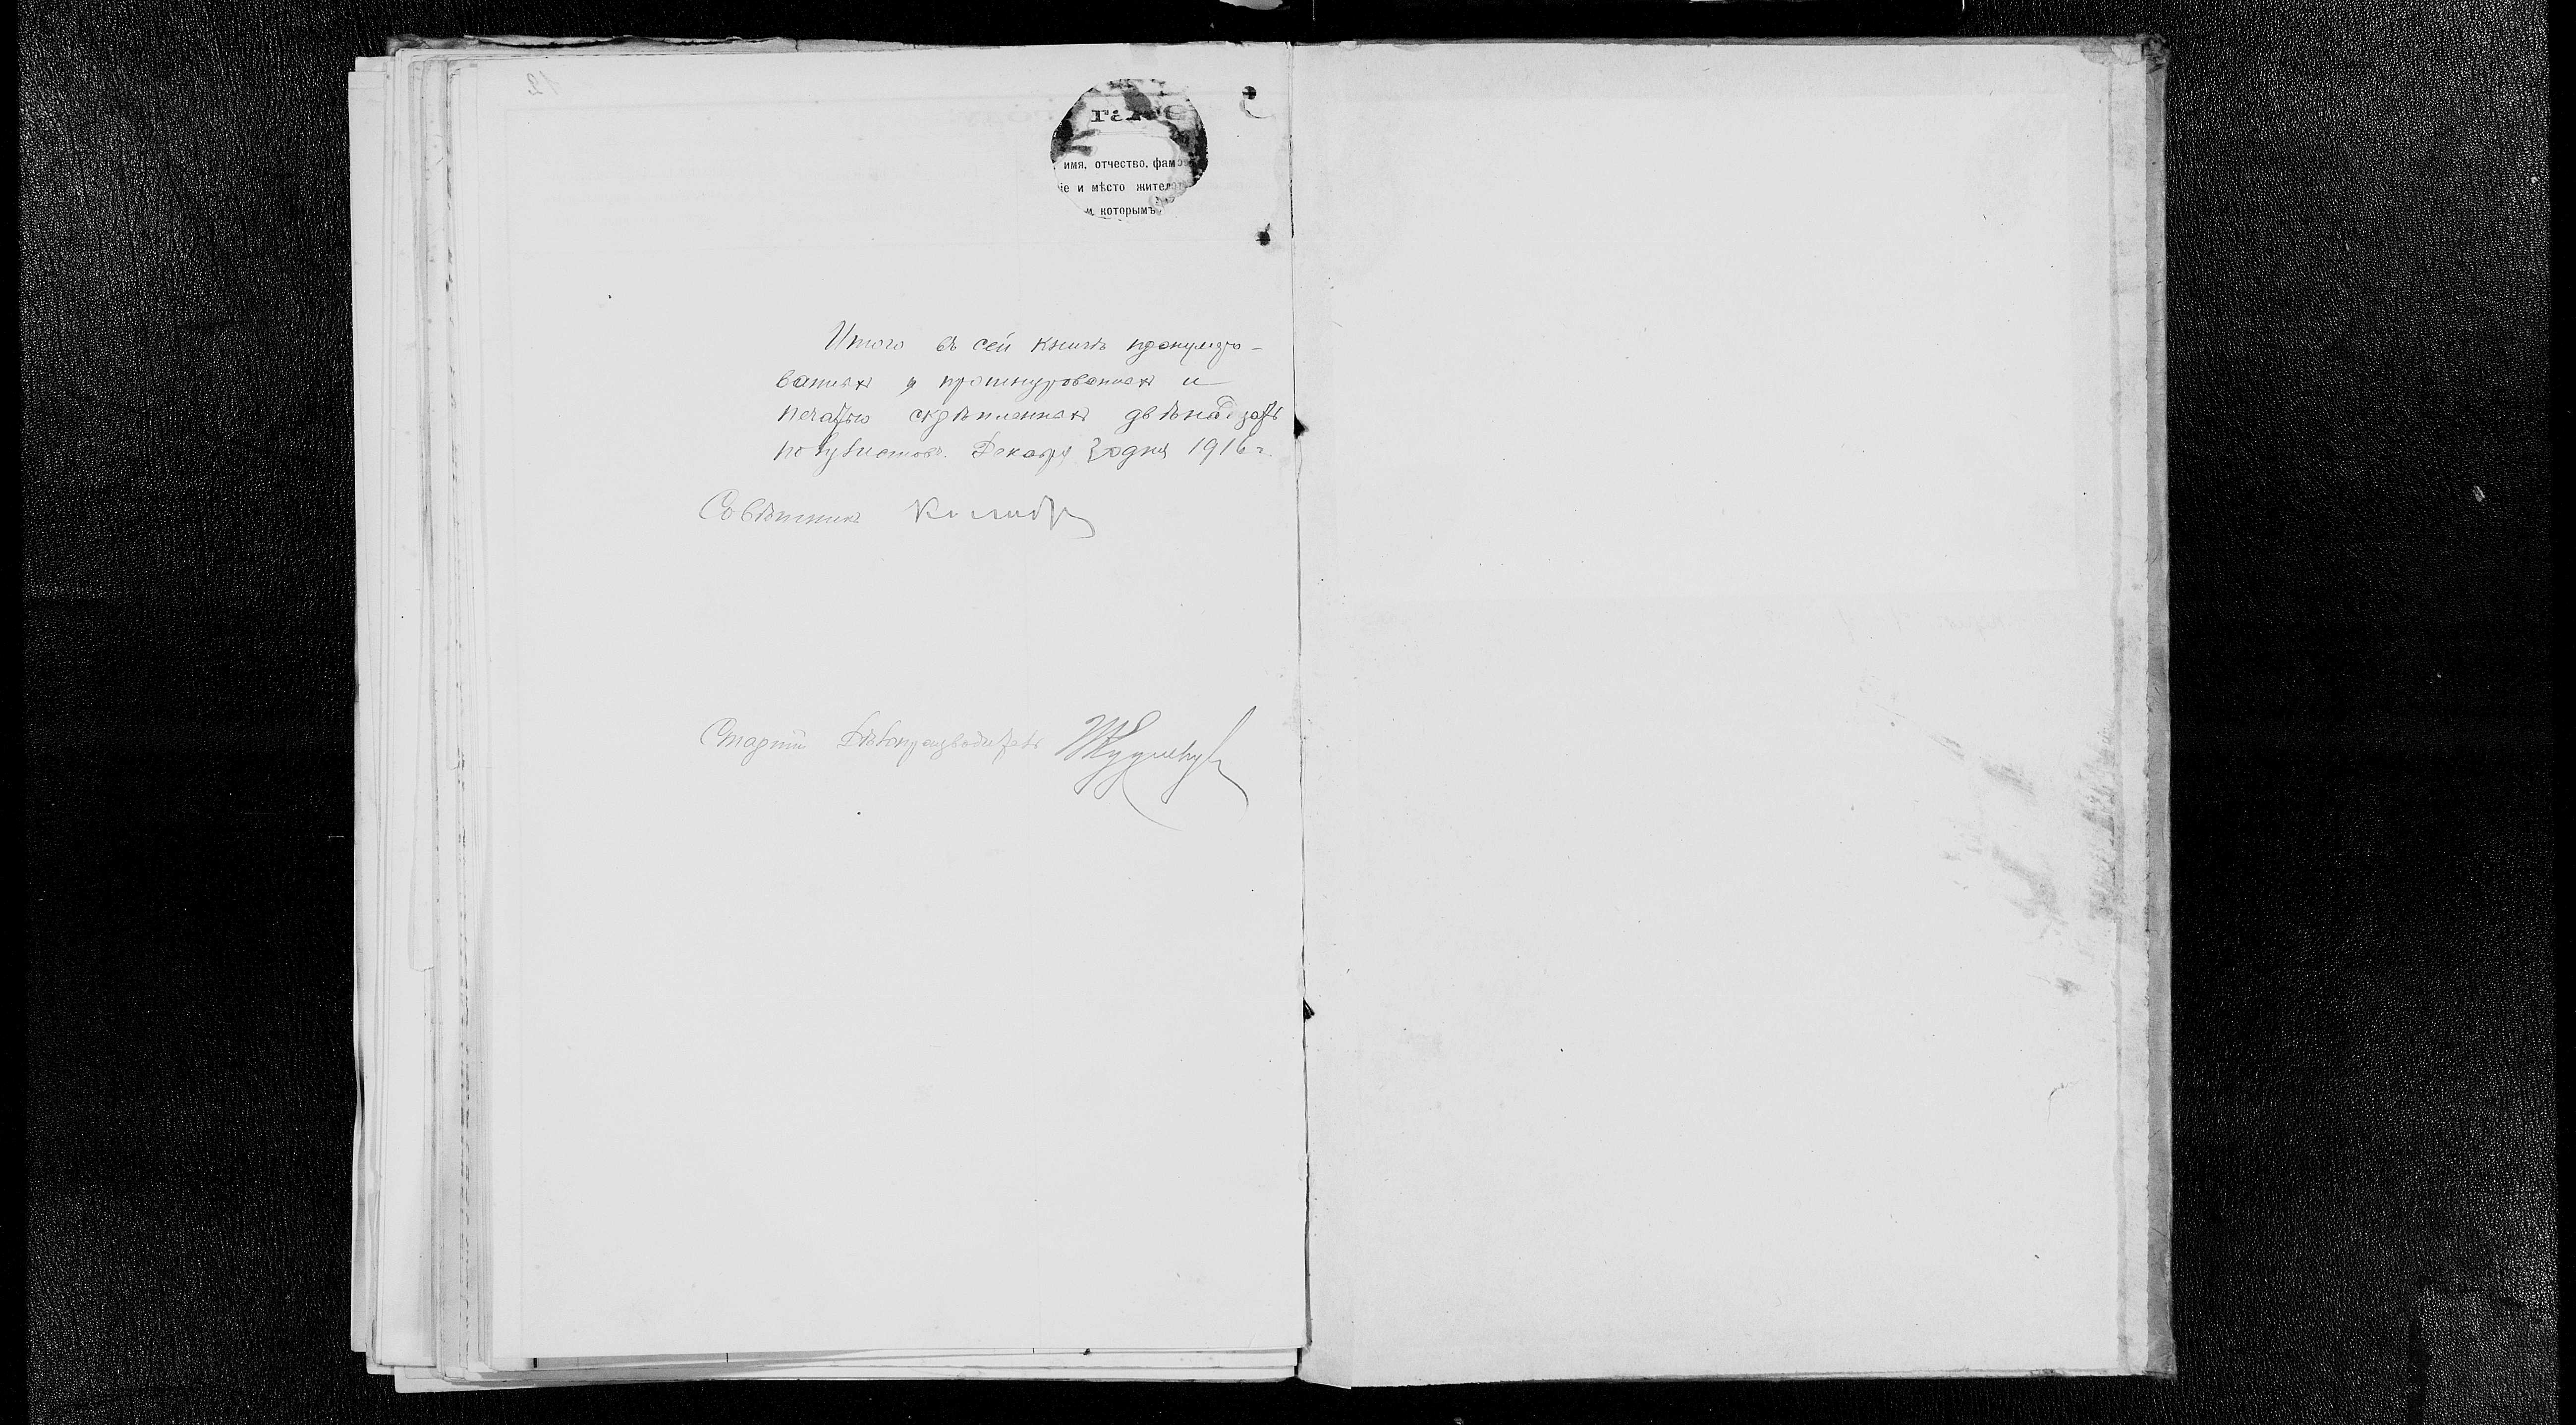 имя, отчество, фам
іе и мѣсто жител
и которымъ
Итого въ сей книгѣ пронумеро-
ванныхъ и прошнурованныхъ и
печатью скрѣпленныхъ двѣнадцать
полулистовъ. Декабря 30 дня 1916 г.
Совѣтникъ
Старшій Дѣлопроизводитель